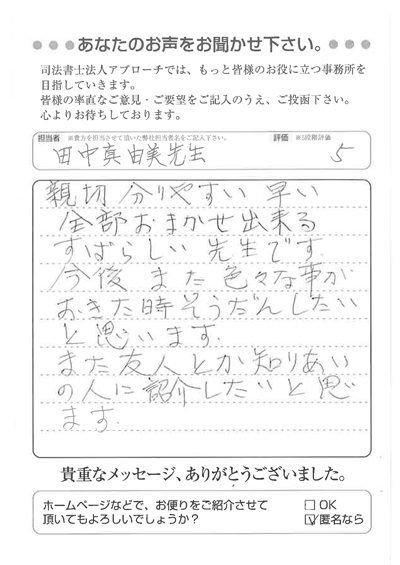 ●●● あなたのお声をお聞かせ下さい。 ●●●
司法書士法人アプローチでは、もっと皆様のお役に立つ事務所を
目指していきます。
皆様の率直なご意見・ご要望をご記入のうえ、ご投函下さい。
心よりお待ちしております。
担当者 ※貴方を担当させて頂いた弊社担当者名をご記入下さい。 評価 ※5段階評価
田中真由美先生 5
親切 分りやすい 早い
全部おまかせ出来る
すばらしい 先生です.
今後 また 色々な事が
おきた時そうだんしたい
と思います.
また友人とか知りあい
の人に紹介したいと思い
ます.
貴重なメッセージ、ありがとうございました。
ホームページなどで、お便りをご紹介させて
頂いてもよろしいでしょうか？
□ OK
☑ 匿名なら